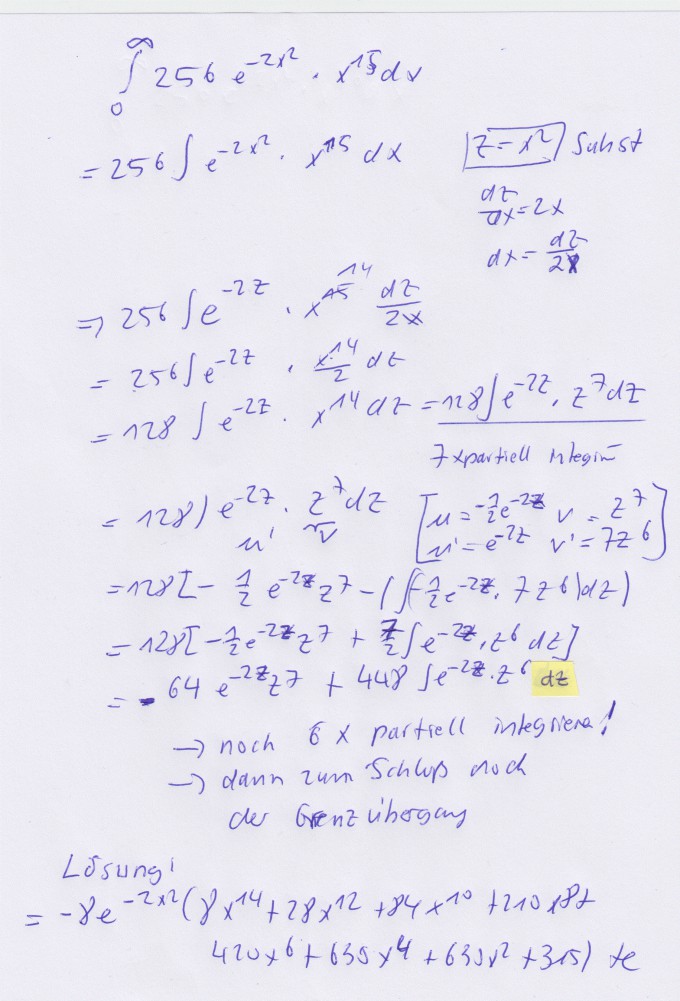 ∫₀^∞ 256 e^{-2x²} · x^{15} dx
= 256 ∫ e^{-2x²} · x^{15} dx
z = x² Subst
dz/dx = 2x
dx = dz/2x
⇒ 256 ∫ e^{-2z} · x^{14} dz/2x
= 256 ∫ e^{-2z} · x^{14}/2 dz
= 128 ∫ e^{-2z} · x^{14} dz = 128 ∫ e^{-2z} · z^7 dz
7x partiell
= 128 ∫ e^{-2z} · z^7 dz
u' v
[u = -1/2 e^{-2z} v = z^7
u' = e^{-2z} v' = 7z^6]
= 128 [- 1/2 e^{-2z} z^7 - (∫(-1/2 e^{-2z} · 7z^6) dz)
= 128 [-1/2 e^{-2z} z^7 + 7/2 ∫ e^{-2z} · z^6 dz]
= - 64 e^{-2z} z^7 + 448 ∫ e^{-2z} · z^6 dz
→ noch 6 x partiell integrieren!
→ dann zum Schluß noch
der Grenzübergang
Lösung:
= -8e^{-2x²} (8x^{14} + 28x^{12} + 84x^{10} + 210x^8 +
420x^6 + 630x^4 + 630x² + 315) + c